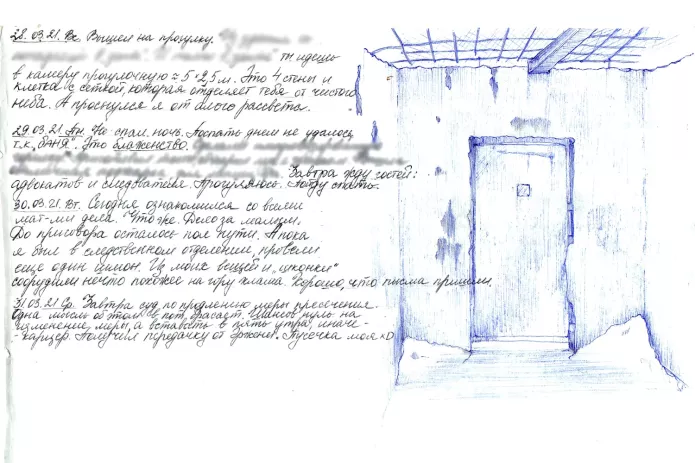 28.03.21. Вс. Вышел на прогулку.
ты идешь
в камеру прогулочную ≈ 5 * 2,5 м. Это 4 стены и
клетка с сеткой, которая отделяет тебя от чистого
неба. А проснулся я от алого рассвета.
29.03.21. Пн. Не спал ночь. Поспать днем не удалось
т.к. "баня". Это блаженство.
Завтра жду гостей:
адвокатов и следователя. Прогуляюсь. Пойду спать.
30.03.21. Вт. Сегодня ознакомился со всеми
мат-ми дела. Что же. Дело за малым.
До приговора осталось пол пути. А пока
я был в следственном отделении, провели
еще один шмон. Из моих вещей и "иконки"
соорудили нечто похожее на гору хлама. Хорошо, что письма приняли
31.03.21 Ср. Завтра суд по продлению меры пресечения.
Одна мысль об этом в пот бросает. Шансов нуль на
изменение меры, а вставать в пять утра, иначе -
- карцер. Получил передачку от